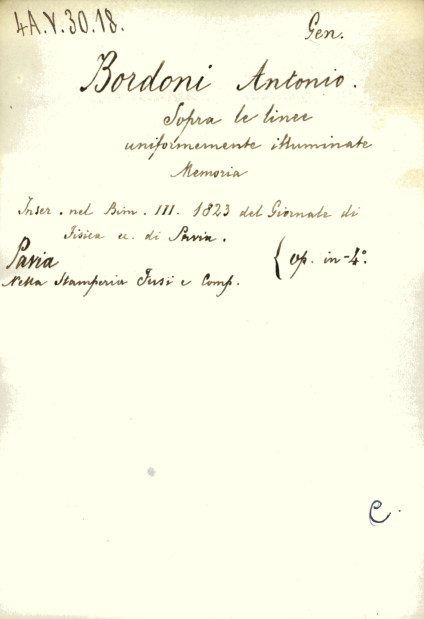 4A.V.30.18.
Gen.
Bordoni Antonio.
Sopra le linee
uniformemente illuminate
Memoria
Inser. nel Bim. III. 1823 del Giornale di
Fisica ec. di Pavia.
Pavia
{ op. in-4º.
Nella Stamperia Fusi e Comp.
C.